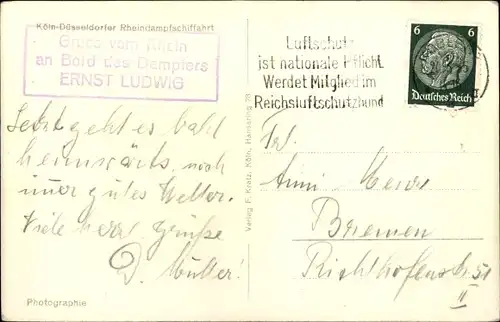 Köln-Düsseldorfer Rheindampfschiffahrt
Gruss vom Rhein
an Bord des Dampfers
ERNST LUDWIG
Luftschutz
ist nationale Pflicht
Werdet Mitglied im
Reichsluftschutzbund
6 6
Deutsches Reich
Jetzt geht es bald
heimwärts, noch
immer gutes Wetter.
Viele herzl. Grüße
D. Müller!
Frl.
Anni
Bremen
Richthofenstr. 51
II
Verlag F. Kratz, Köln, Hansaring 78
Photographie